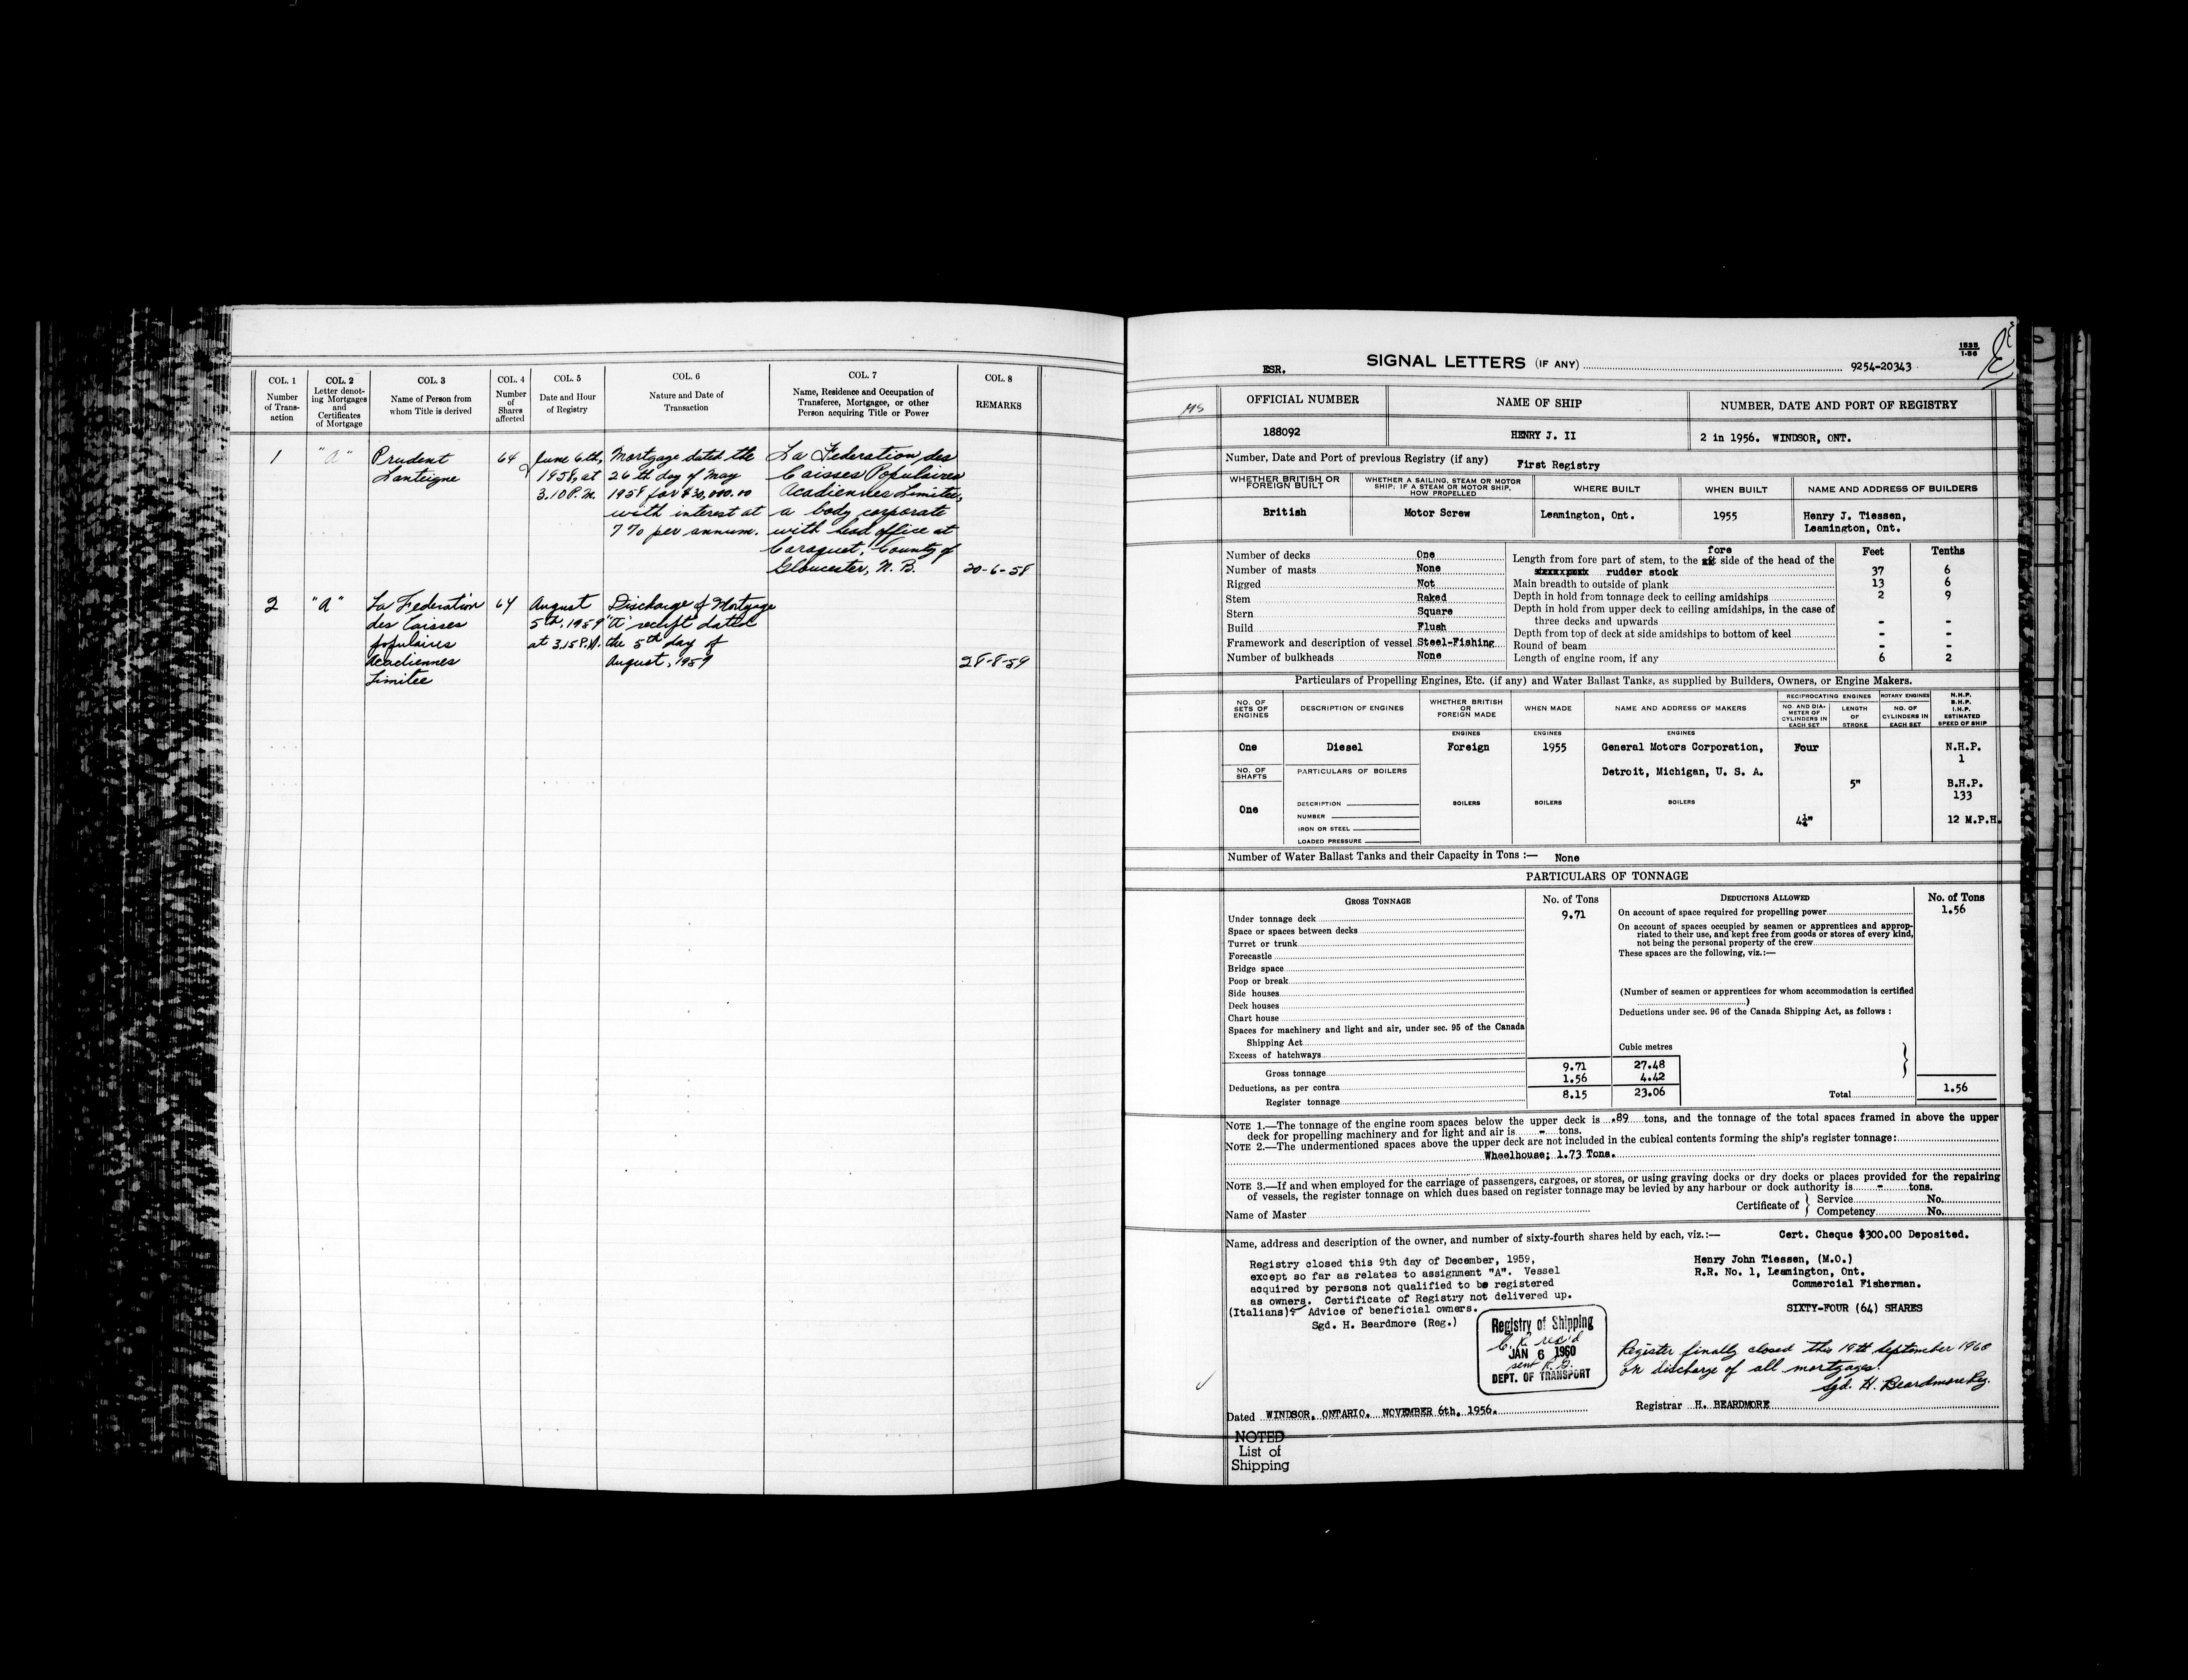 COL. 1
Number
of Trans-
action
COL. 2
Letter denot-
ing Mortgages
and
Certificates
of Mortgage
COL. 3
Name of Person from
whom Title is derived
COL. 4
Number
of
Shares
affected
COL. 5
Date and Hour
of Registry
COL. 6
Nature and Date of
Transaction
COL. 7
Name, Residence and Occupation of
Transferee, Mortgagee, or other
Person acquiring Title or Power
COL. 8
REMARKS
1
"A"
Prudent
Lanteigne
64
June 6th,
1958, at
3.10 P.M.
Mortgage dated the
26th day of May
1958 for $30,000.00
with interest at
7% per annum.
La Federation des
Caisses Populaires
Acadiennes Limitee,
a body corporate
with head office at
Caraquet, County of
Gloucester, N. B.
20-6-58
2
"A"
La Federation
des Caisses
populaires
Acadiennes
Limitee
64
August
5th, 1959
at 3.15 P.M.
Discharge of Mortgage
"A" receipt dated
the 5th day of
August, 1959
28-8-59
1535
1-56
ESR.
SIGNAL LETTERS (IF ANY)
9254-20343
OFFICIAL NUMBER
NAME OF SHIP
NUMBER, DATE AND PORT OF REGISTRY
188092
HENRY J. II
2 in 1956. WINDSOR, ONT.
Number, Date and Port of previous Registry (if any) First Registry
WHETHER BRITISH OR
FOREIGN BUILT
WHETHER A SAILING, STEAM OR MOTOR
SHIP; IF A STEAM OR MOTOR SHIP,
HOW PROPELLED
WHERE BUILT
WHEN BUILT
NAME AND ADDRESS OF BUILDERS
British
Motor Screw
Leamington, Ont.
1955
Henry J. Tiessen,
Leamington, Ont.
Number of decks One
Number of masts None
Rigged Not
Stem Raked
Stern Square
Build Flush
Framework and description of vessel Steel-Fishing
Number of bulkheads None
Feet Tenths
fore
Length from fore part of stem, to the aft side of the head of the
rudder stock 37 6
Main breadth to outside of plank 13 6
Depth in hold from tonnage deck to ceiling amidships 2 9
Depth in hold from upper deck to ceiling amidships, in the case of
three decks and upwards - -
Depth from top of deck at side amidships to bottom of keel - -
Round of beam - -
Length of engine room, if any 6 2
Particulars of Propelling Engines, Etc. (if any) and Water Ballast Tanks, as supplied by Builders, Owners, or Engine Makers.
NO. OF
SETS OF
ENGINES
DESCRIPTION OF ENGINES
WHETHER BRITISH
OR
FOREIGN MADE
WHEN MADE
NAME AND ADDRESS OF MAKERS
RECIPROCATING ENGINES
NO. AND DIA-
METER OF
CYLINDERS IN
EACH SET
LENGTH
OF
STROKE
ROTARY ENGINES
NO. OF
CYLINDERS IN
EACH SET
N.H.P.
B.H.P.
I.H.P.
ESTIMATED
SPEED OF SHIP
ENGINES ENGINES ENGINES
One
Diesel
Foreign
1955
General Motors Corporation,
Detroit, Michigan, U. S. A.
Four
N.H.P.
1
NO. OF
SHAFTS
PARTICULARS OF BOILERS
5"
B.H.P.
133
One
DESCRIPTION
NUMBER
IRON OR STEEL
LOADED PRESSURE
BOILERS BOILERS BOILERS
4¼"
12 M.P.H.
Number of Water Ballast Tanks and their Capacity in Tons :— None
PARTICULARS OF TONNAGE
GROSS TONNAGE
No. of Tons
Under tonnage deck 9.71
Space or spaces between decks
Turret or trunk
Forecastle
Bridge space
Poop or break
Side houses
Deck houses
Chart house
Spaces for machinery and light and air, under sec. 95 of the Canada
Shipping Act
Excess of hatchways
Gross tonnage 9.71 27.48
Deductions, as per contra 1.56 4.42
Register tonnage 8.15 23.06
DEDUCTIONS ALLOWED
No. of Tons
On account of space required for propelling power 1.56
On account of spaces occupied by seamen or apprentices and approp-
riated to their use, and kept free from goods or stores of every kind,
not being the personal property of the crew
These spaces are the following, viz.:—
(Number of seamen or apprentices for whom accommodation is certified
)
Deductions under sec. 96 of the Canada Shipping Act, as follows :
Cubic metres
Total 1.56
NOTE 1.—The tonnage of the engine room spaces below the upper deck is .89 tons, and the tonnage of the total spaces framed in above the upper
deck for propelling machinery and for light and air is - tons.
NOTE 2.—The undermentioned spaces above the upper deck are not included in the cubical contents forming the ship's register tonnage:
Wheelhouse; 1.73 Tons.
NOTE 3.—If and when employed for the carriage of passengers, cargoes, or stores, or using graving docks or dry docks or places provided for the repairing
of vessels, the register tonnage on which dues based on register tonnage may be levied by any harbour or dock authority is - tons.
Name of Master
Certificate of
Service No.
Competency No.
Name, address and description of the owner, and number of sixty-fourth shares held by each, viz.:—
Cert. Cheque $300.00 Deposited.
Registry closed this 9th day of December, 1959,
except so far as relates to assignment "A". Vessel
acquired by persons not qualified to be registered
as owners. Certificate of Registry not delivered up.
(Italians) Advice of beneficial owners.
Sgd. H. Beardmore (Reg.)
Henry John Tiessen, (M.O.)
R.R. No. 1, Leamington, Ont.
Commercial Fisherman.
SIXTY-FOUR (64) SHARES
Registry of Shipping
C.R. rec'd
JAN 6 1960
sent R.G.
DEPT. OF TRANSPORT
Register finally closed this 19th September 1960
on discharge of all mortgages.
Sgd. H. Beardmore Reg.
Dated WINDSOR, ONTARIO. NOVEMBER 6th, 1956.
Registrar H. BEARDMORE
NOTED
List of
Shipping